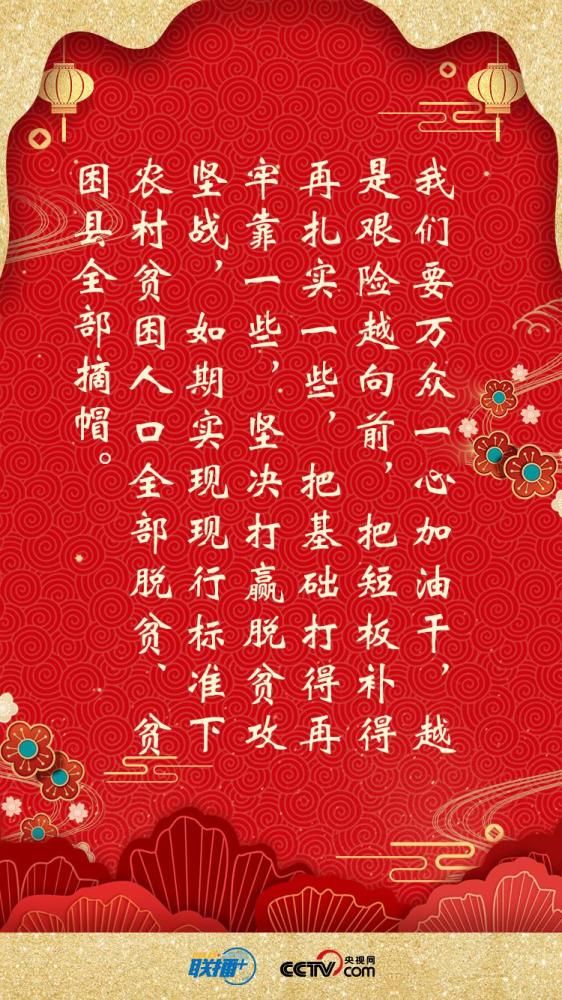 我们要万众一心加油干，越
是艰险越向前，把短板补得
再扎实一些，把基础打得再
牢靠一些，坚决打赢脱贫攻
坚战，如期实现现行标准下
农村贫困人口全部脱贫、贫
困县全部摘帽。
联播+
CCTV.com 央视网